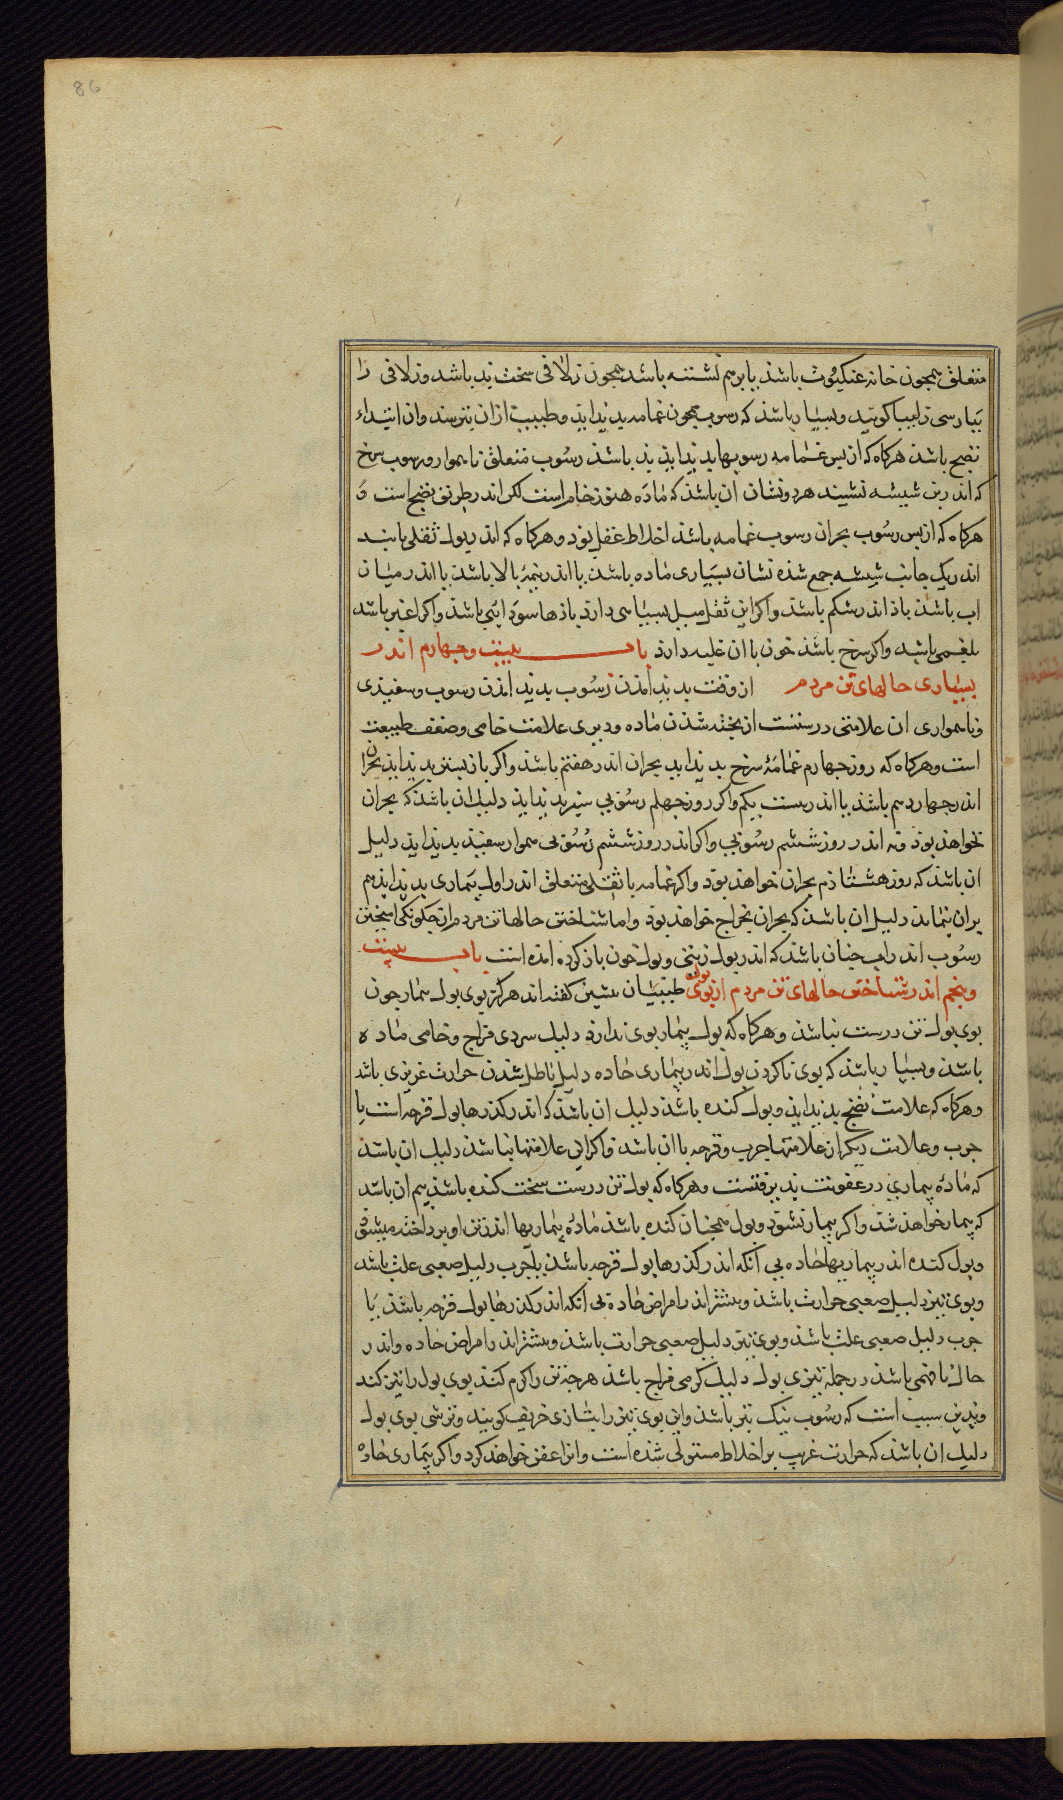 86
متعلق همچون خانه عنکبوت باشد یا برهم نشسته باشد همچون زلاقی سخت بد باشد و زلاقی را
بپارسی زلیبا کویند و بسیار باشد که رسوب همچون غمامه پدید اید و طبیب ازان بترسد وان ابتداء
نضج باشد هرکاه که از پس غمامه رسوبها پدید اید بد باشد رسوب متعلق ناهموار و رسوب سرخ
که اندر بن شیشه نشیند هردو نشان ان باشد که ماده هنوز خام است لکن اندر طریق نضج است و
هرکاه که از پس رسوب بحران رسوب غمامه باشد اخلاط بود و هرکاه که اندر بول ثقلی باشد
اندر یک جانب شیشه جمع شده نشان بسیاری ماده باشد یا اندر نیمهٔ بالا باشد یا اندر میان
اب باشد باد اندر شکم باشد واکر این ثقل میل بسیاهی دارد بادها سوداپی باشد واکر اغبر باشد
بلغمی باشد واکر سرخ باشد خون با ان غلبه دارد باب بیست و چهارم اندر
بسیاری حالهای تن مردم از وقت پدید آمدن رسوب پدید امدن رسوب و سفیدی
و ناهمواری ان علامتی درستست از پخته شدن ماده و دیری علامت خامی و ضعف طبیعت
است و هرکاه که روز چهارم غمامهٔ سرخ پدید اید بحران اندر هفتم باشد واکر بازپستر پدید اید بحران
اندر چهاردهم باشد یا اندر بیست یکم واکر روز چهلم رسوبی پدید اید دلیل ان باشد که بحران
نخواهد بود و نه اندر روز ششم رسوبی واکر اندر روز ششم رسوبی هموار سفید پدید اید دلیل
ان باشد که روز هشتادم بحران خواهد بود واکر غمامه یا ثقلی متعلق اندر اول بیماری پدید اید هم
بران بماند دلیل ان باشد که بحران بخراج خواهد بود واما شناختن حالهای تن مردم از چکونکی امیختن
رسوب اندر اب چنان باشد که اندر بول زیتی و بول خون یاد کرده امده است باب بیست
و پنجم اندر شناختن حالهای تن مردم از بوی بول طبیبان پیشین کفته اند هرکز بوی بول بیمار چون
بوی بول تن درست نباشد و هرکاه که بول بیمار بوی ندارد دلیل سردی مزاج و خامی ماده
باشد و بسیار باشد که بوی ناکردن بول اندر بیماری حاده دلیل باطل شدن حرارت غریزی باشد
و هرکاه که علامت نضج پدید اید و بول کنده باشد دلیل ان باشد که اندر رکذرها بول قرحه است یا
جرب و علامت دیکر از علامتها جرب و قرحه با ان باشد و اکر این علامتها نباشد دلیل ان باشد
که ماده بیماری در عفونت پذیرفتست و هرکاه که بول تن درست سخت کنده باشد بیم ان باشد
که بیمار خواهد شد و اکر بیمار نشود و بول همچنان کنده باشد مادهٔ بیماریها اندر تن او پرداخته میشود
و بول کنده اندر بیماریها حاده بی آنکه اندر رکذرها بول قرحه باشد یا جرب دلیل صعبی علت باشد
و بوی تیز دلیل صعبی حرارت باشد و بیشتر اندر امراض حاده بی انکه اندر رکذرها بول قرحه باشد یا
جرب دلیل صعبی علت باشد و بوی تیز دلیل صعبی حرارت باشد و بیشتر اندر امراض حاده واندر
حال باشد در جمله تیزی بول دلیل کرمی مزاج باشد هرچه تن را کرم کند بوی بول را تیز کند
و بدین سبب است که رسوب نیک تیز باشد واین بوی تیز را بتازی حریف کویند و ترشی بوی بول
دلیل ان باشد که حرارت غریب بر اخلاط مستولی شده است وانرا عفن خواهد کرد واکر بیماری حاده